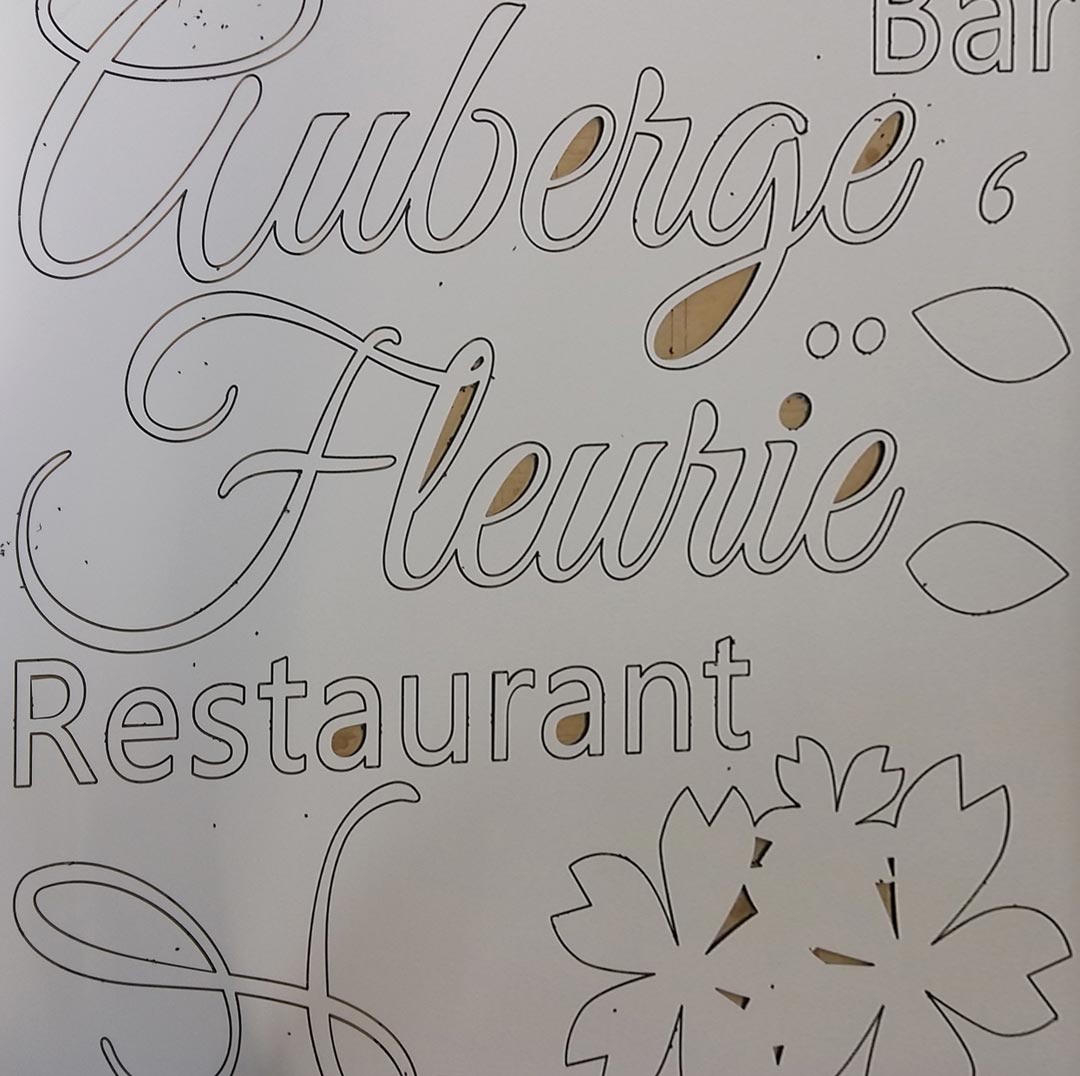 Bar
Auberge
Fleurie
Restaurant